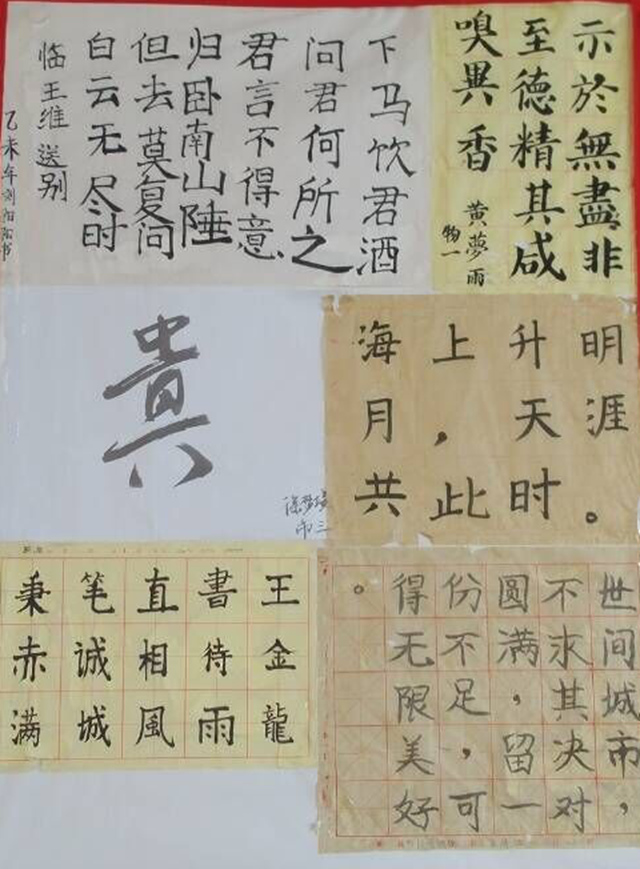 示於無盡非
至德精其咸
嗅異香
黄夢雨
物一
下马饮君酒
问君何所之
君言不得意
归卧南山陲
但去莫复问
白云无尽时
临王维送别
乙未年刘阳阳书
貴
海上升明
月，天涯
共此时。
秉笔直書王
赤诚相待金
满城風雨龍
世间城市，
不求其决对
圆满，留一
份不足，可
得无限美好
。